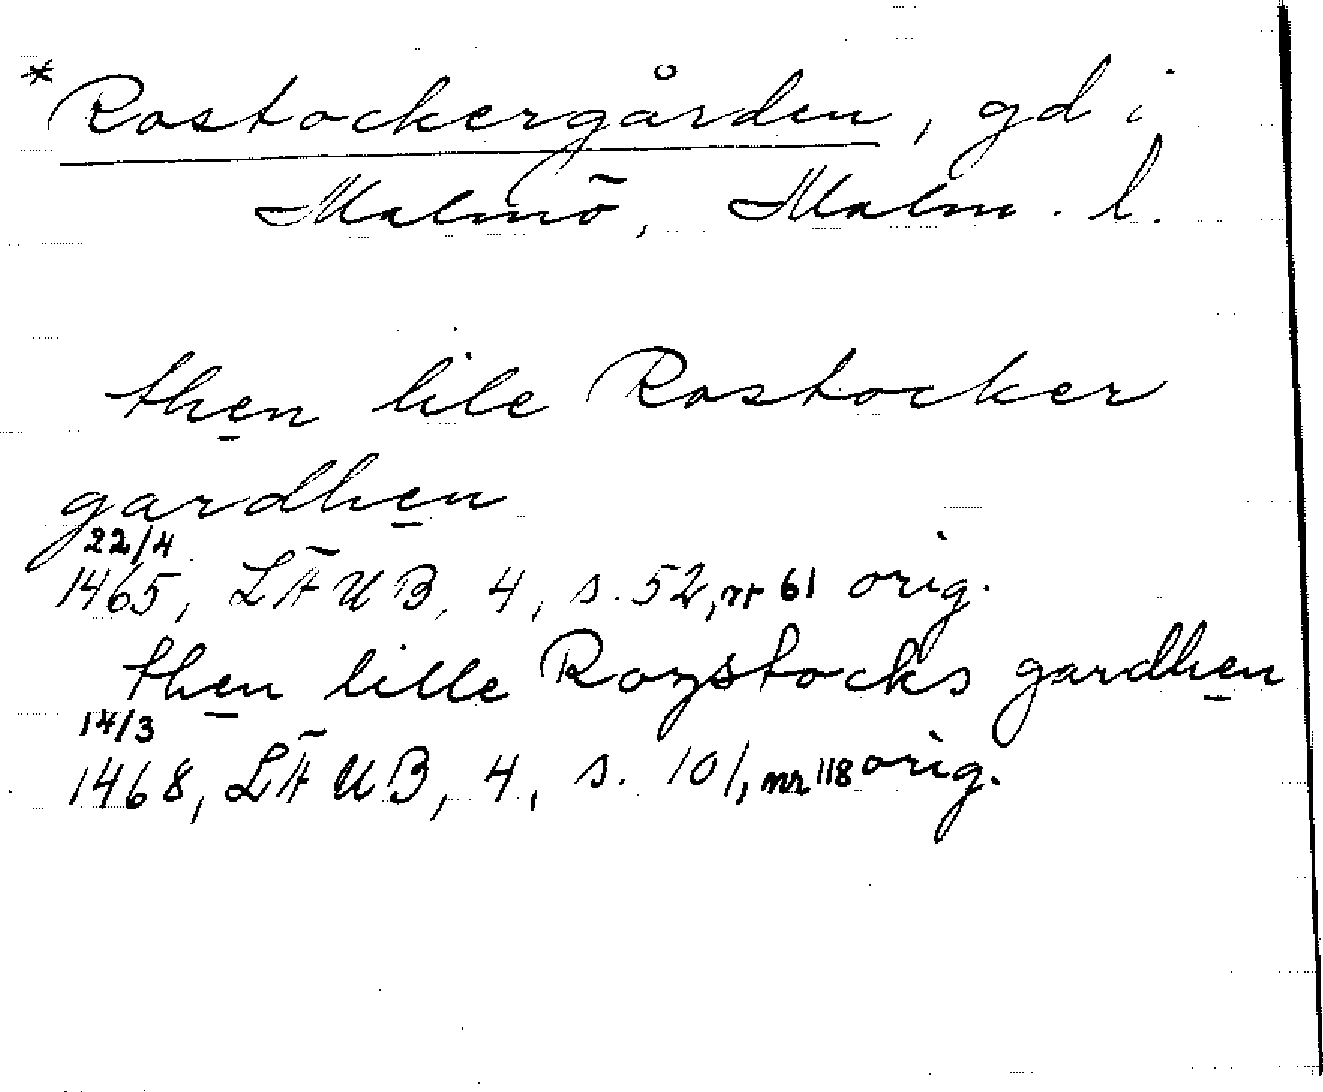 *Rostockergården, gd i
Malmö, Malm. l.
then lile Rostocker
gardhen
22/4
1465, LÄUB, 4, s. 52, nr 61 orig.
then lille Roystocks gardhen
14/3
1468, LÄUB, 4, s. 101, nr 118 orig.